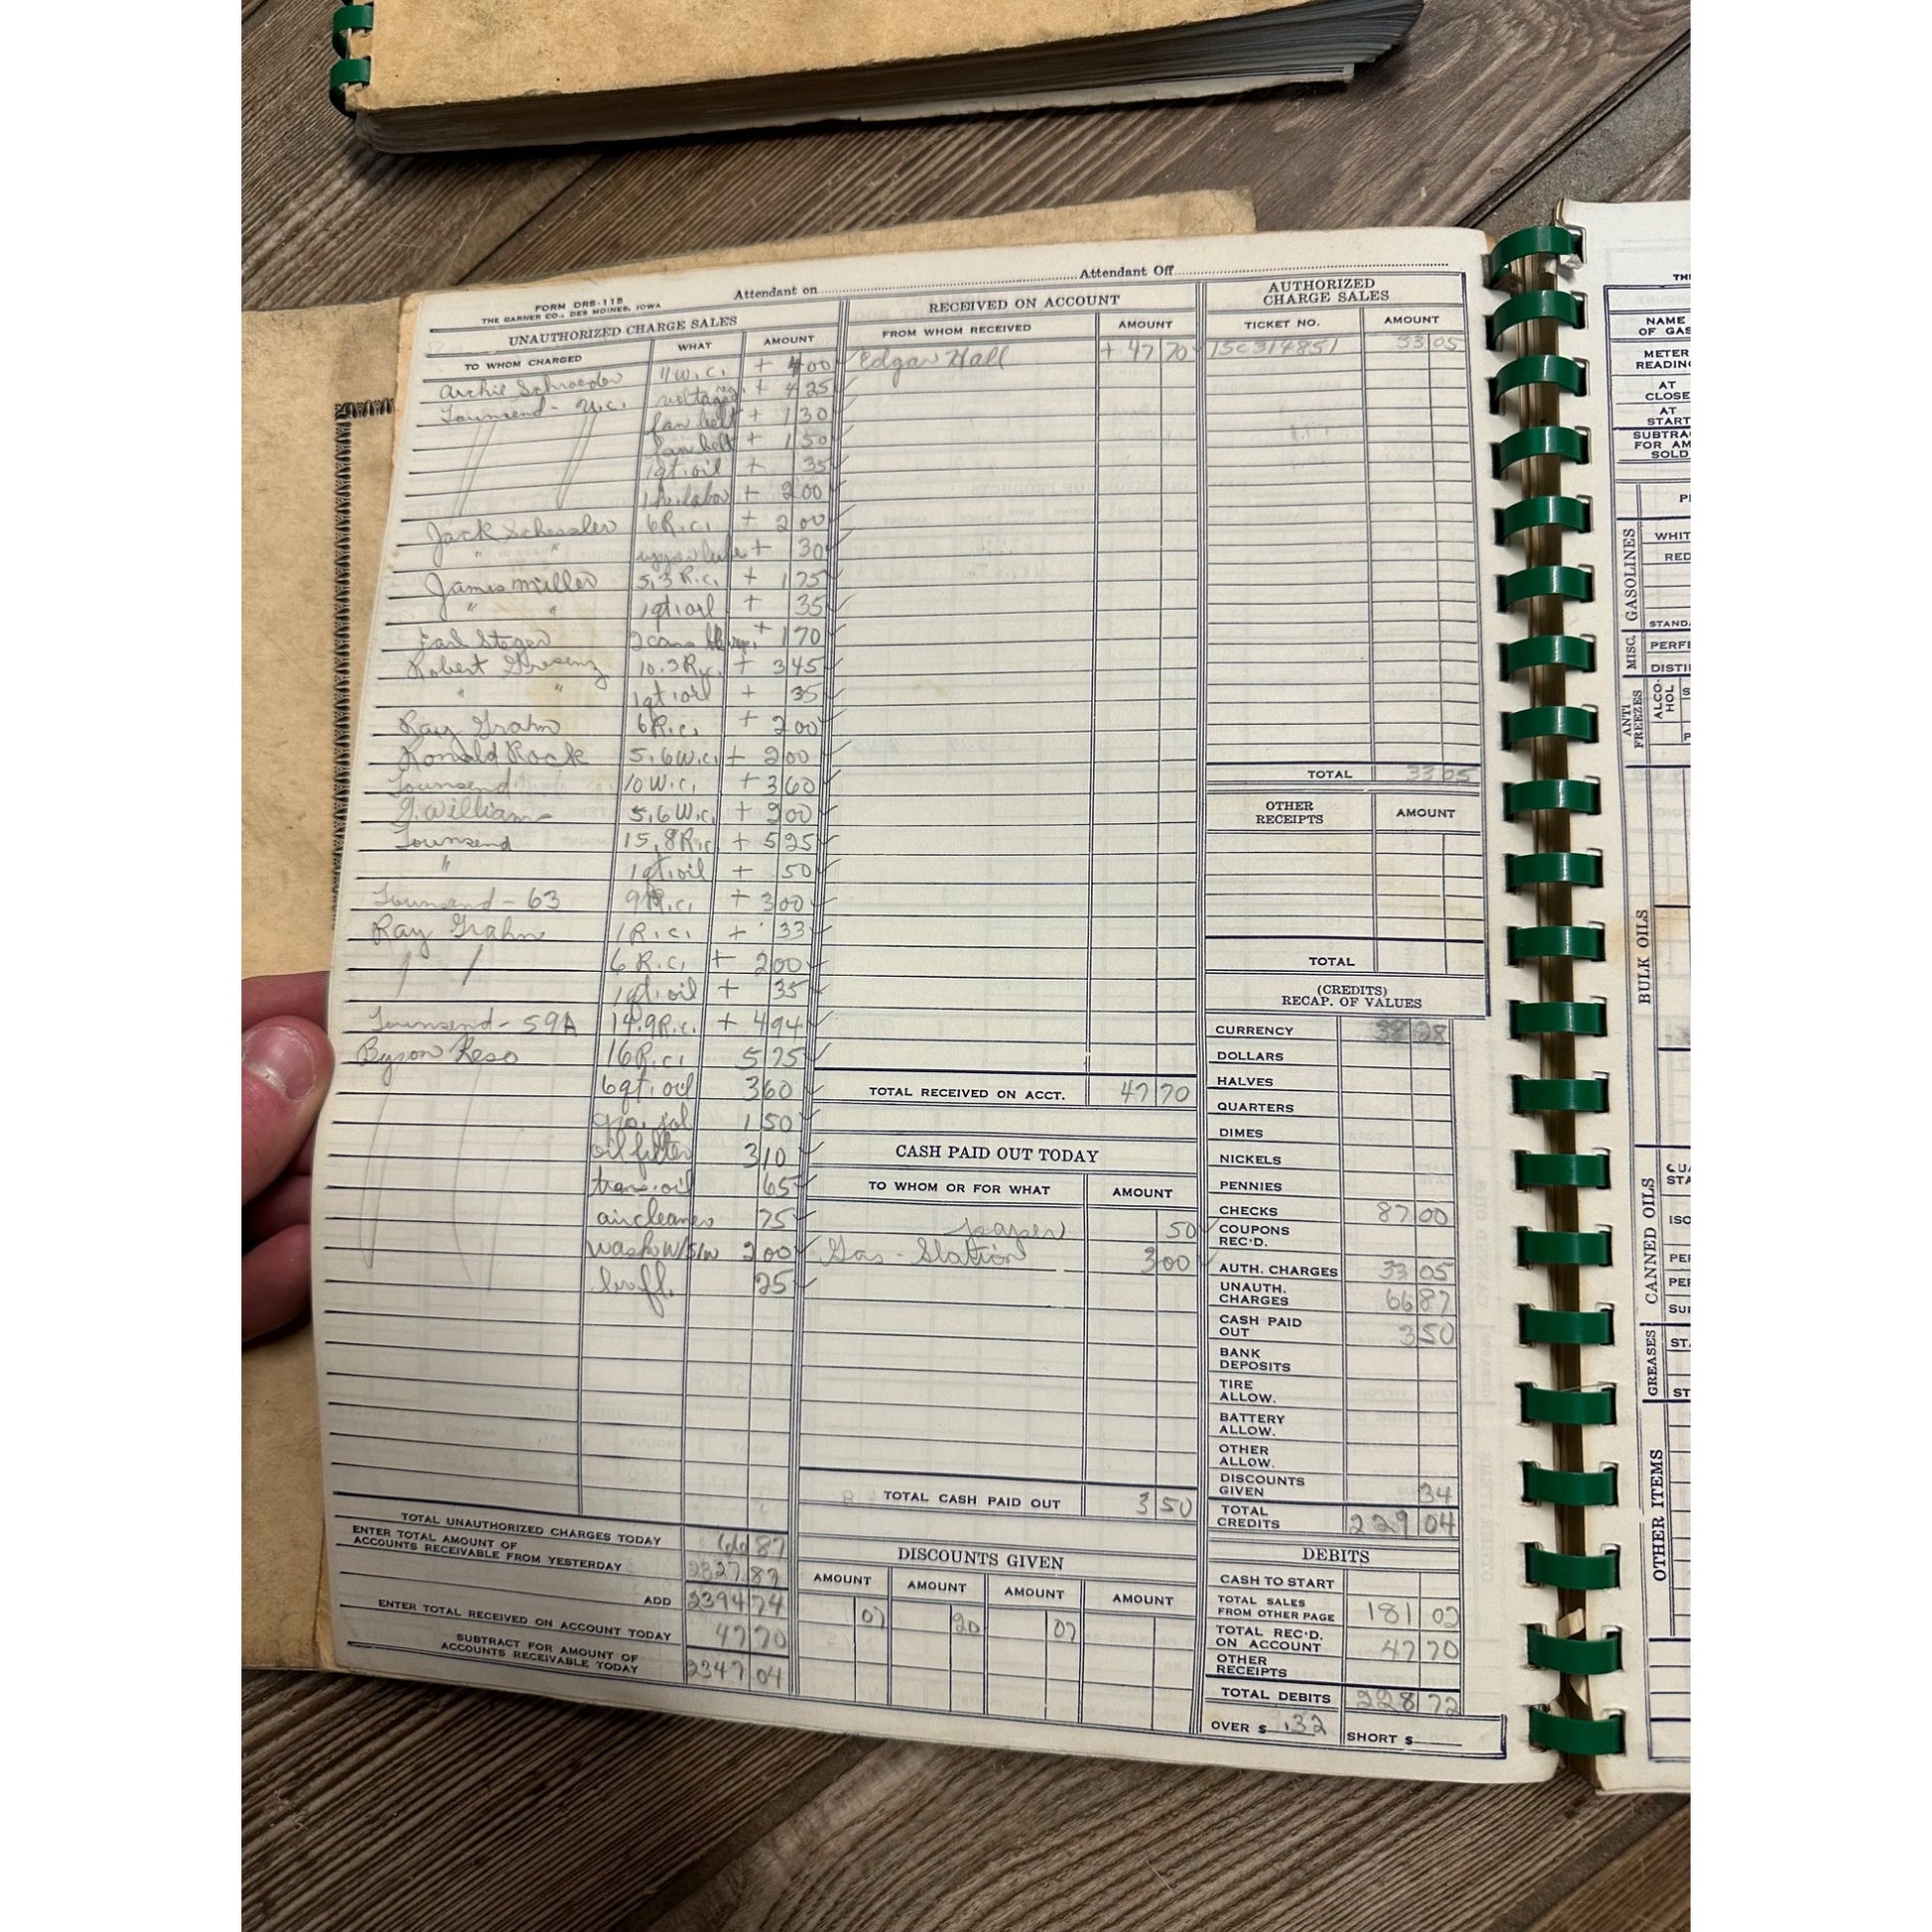 Attendant on
Attendant Off
FORM DRS-115
THE GARNER CO., DES MOINES, IOWA
UNAUTHORIZED CHARGE SALES
TO WHOM CHARGED WHAT AMOUNT
Archie Schroeder 11 W.C. + 4 00
Townsend - voltage reg. + 4 25
fan belt + 1 30
fan belt + 1 50
1 qt. oil + 35
1 hr. labor + 2 00
Jack Schessler 6 R.C. + 2 00
" " upper lube + 30
James Miller 5.3 R.C. + 1 75
" " 1 qt. oil + 35
Earl Steger 2 cans + 1 70
Robert 10.3 R.C. + 3 45
" " 1 qt. oil + 35
Ray Grahn 6 R.C. + 2 00
Ronald Rock 5.6 W.C. + 2 00
Townsend 10 W.C. + 3 60
G. Williams 5.6 W.C. + 2 00
Townsend 15.8 R.C. + 5 25
" 1 qt. oil + 50
Townsend - 63 9 R.C. + 3 00
Ray Grahn 1 R.C. + 33
6 R.C. + 2 00
1 qt. oil + 35
Townsend - 59A 14.9 R.C. + 4 94
Byron Keso 16 R.C. 5 75
6 qt. oil 3 60
1 50
oil filter 3 10
trans. oil 65
air cleaner 75
wash W/S/W 2 00
25
TOTAL UNAUTHORIZED CHARGES TODAY 66 87
ENTER TOTAL AMOUNT OF
ACCOUNTS RECEIVABLE FROM YESTERDAY 2327 87
ADD 2394 74
ENTER TOTAL RECEIVED ON ACCOUNT TODAY 47 70
SUBTRACT FOR AMOUNT OF
ACCOUNTS RECEIVABLE TODAY 2347 04
RECEIVED ON ACCOUNT
FROM WHOM RECEIVED AMOUNT
Edgar Hall + 47 70
TOTAL RECEIVED ON ACCT. 47 70
CASH PAID OUT TODAY
TO WHOM OR FOR WHAT AMOUNT
paper 50
Gas - Station 3 00
TOTAL CASH PAID OUT 3 50
DISCOUNTS GIVEN
AMOUNT AMOUNT AMOUNT AMOUNT
07 20 07
AUTHORIZED
CHARGE SALES
TICKET NO. AMOUNT
15C314851 33 05
TOTAL 33 05
OTHER
RECEIPTS AMOUNT
TOTAL
(CREDITS)
RECAP. OF VALUES
CURRENCY 38 28
DOLLARS
HALVES
QUARTERS
DIMES
NICKELS
PENNIES
CHECKS 87 00
COUPONS
REC'D.
AUTH. CHARGES 33 05
UNAUTH.
CHARGES 66 87
CASH PAID
OUT 3 50
BANK
DEPOSITS
TIRE
ALLOW.
BATTERY
ALLOW.
OTHER
ALLOW.
DISCOUNTS
GIVEN 34
TOTAL
CREDITS 229 04
DEBITS
CASH TO START
TOTAL SALES
FROM OTHER PAGE 181 02
TOTAL REC'D.
ON ACCOUNT 47 70
OTHER
RECEIPTS
TOTAL DEBITS 228 72
OVER $ .32 SHORT $
NAME
OF GAS
METER
READING
AT
CLOSE
AT
START
SUBTRA
FOR AM
SOLD
GASOLINES
WHIT
RED
STAND
MISC.
PERFE
DISTI
ANTI
FREEZES
ALCO-
HOL
BULK OILS
CANNED OILS
QUA
STA
ISO
PER
PER
SU
GREASES
STA
ST
OTHER ITEMS